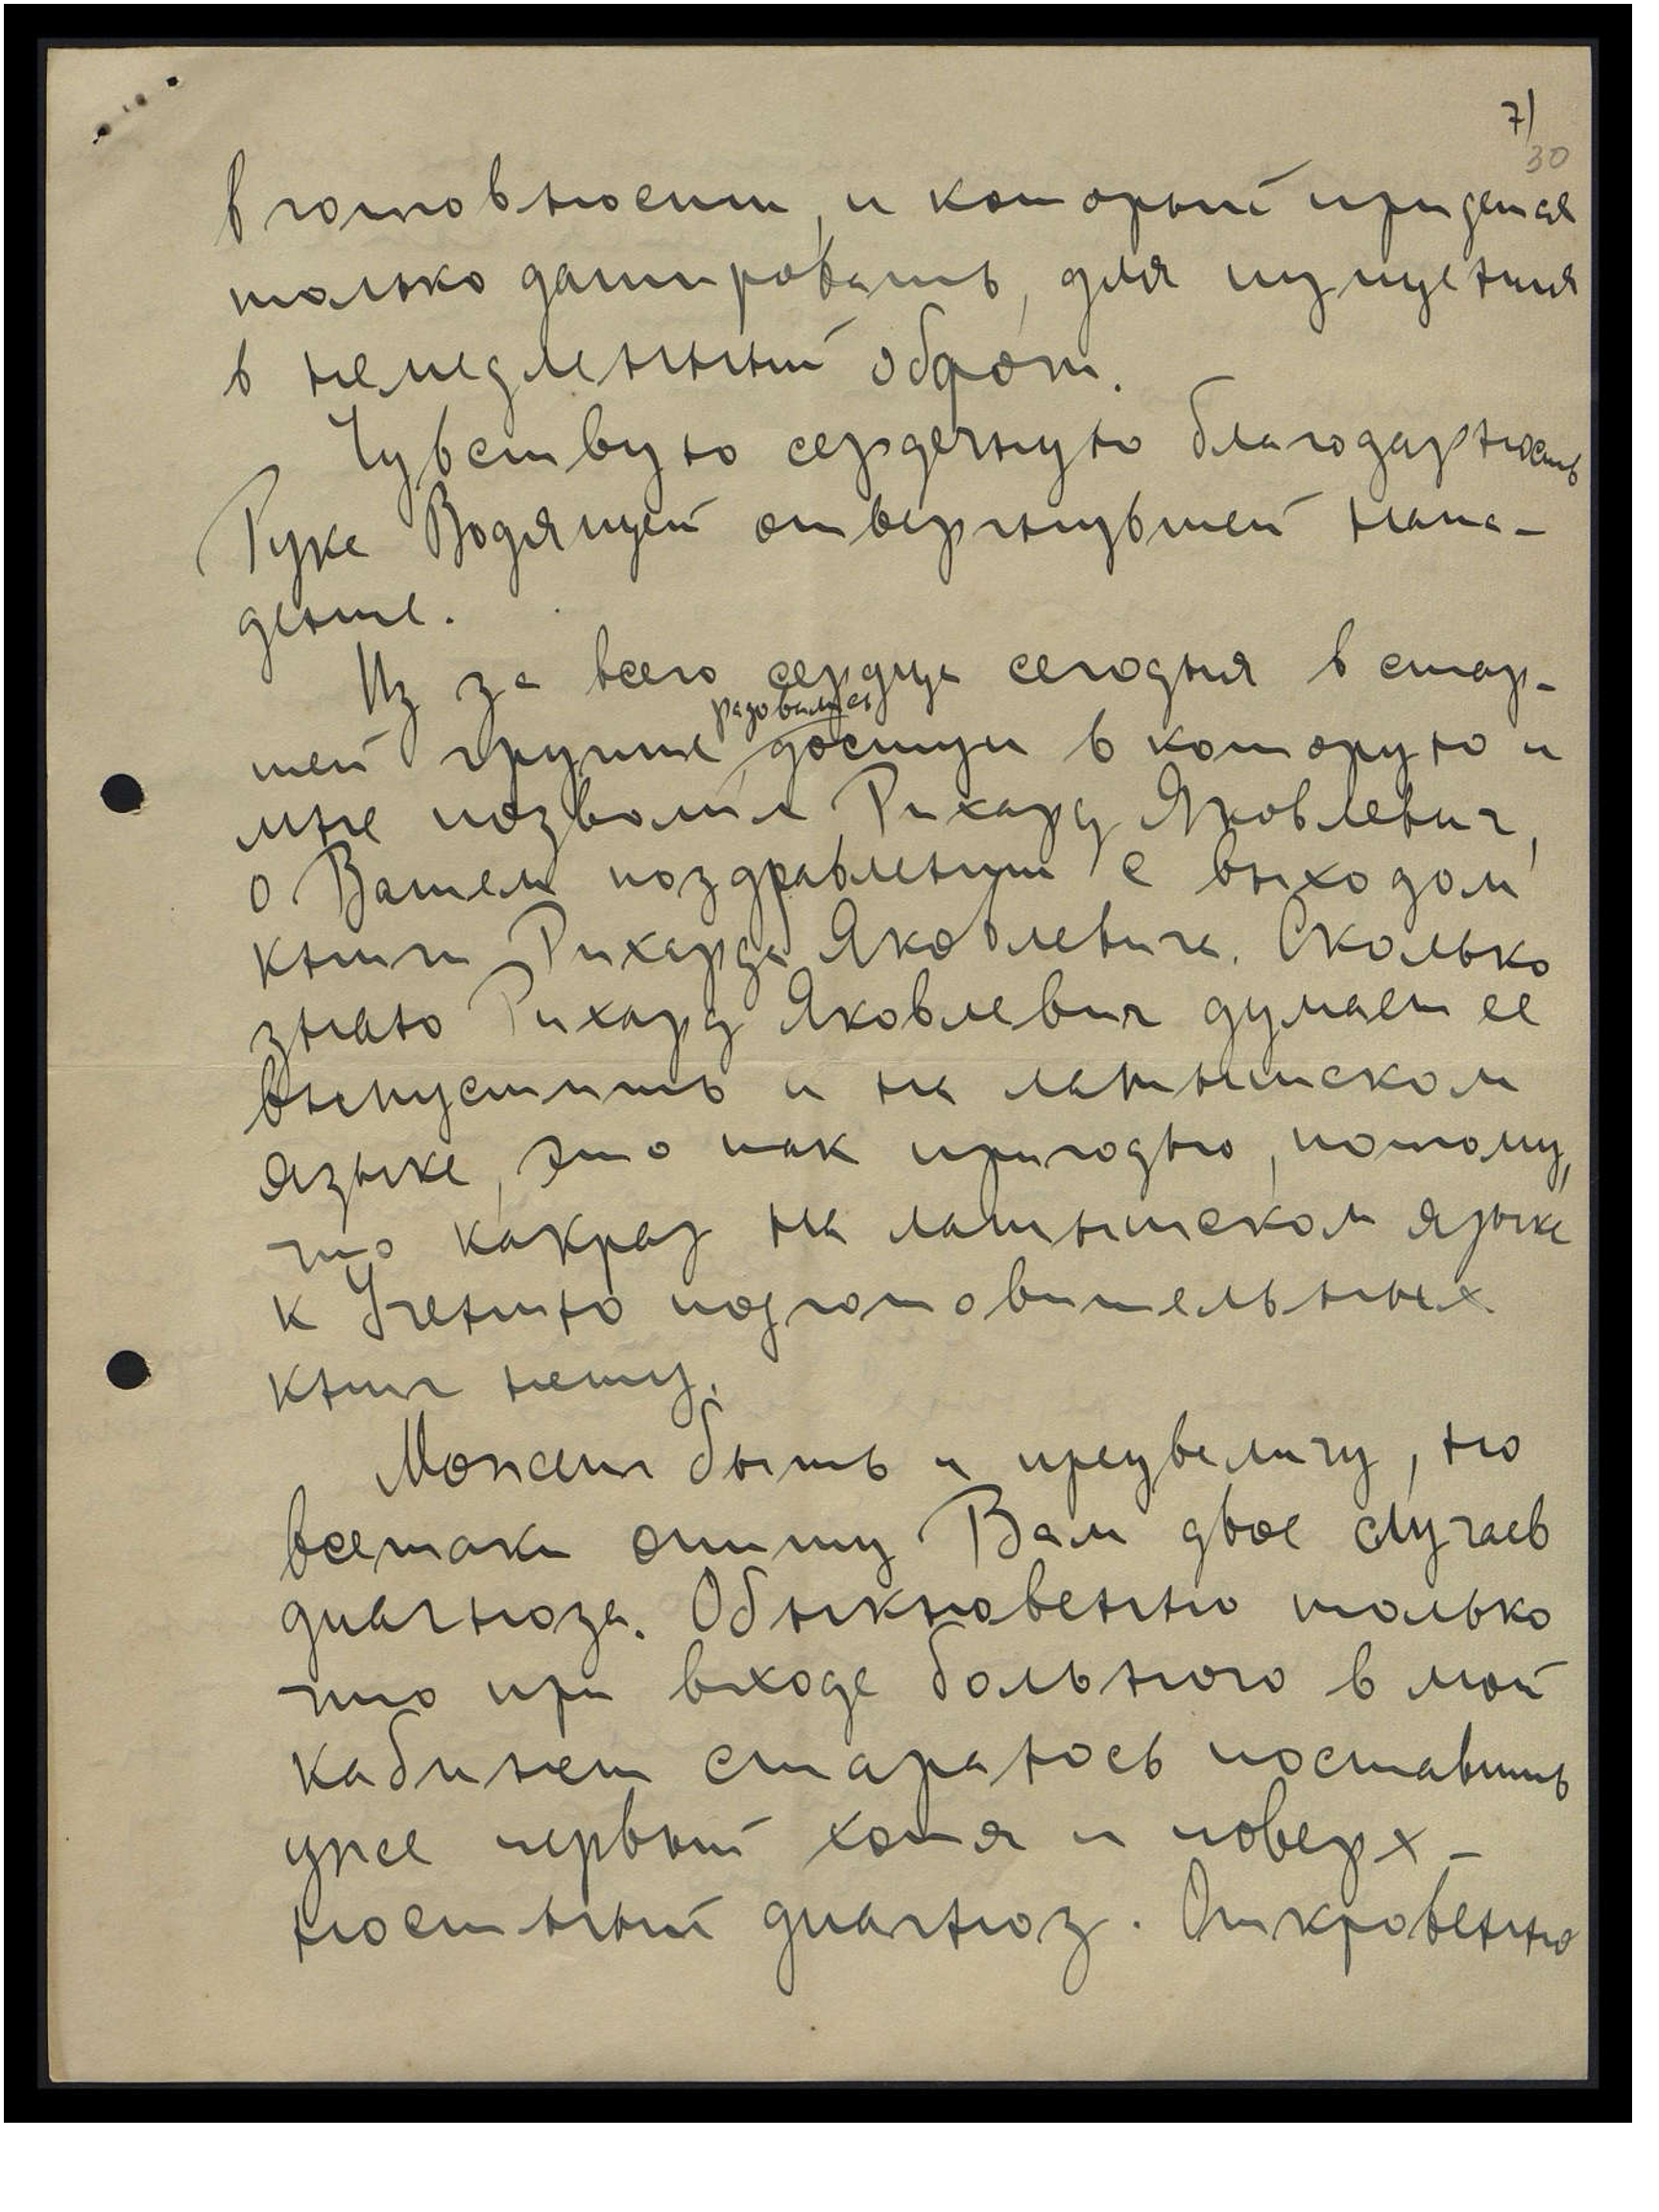 7/
30
в готовности, и который придется
только датировать, для пущения
в немедленный оброт.
Чувствую сердечную благодарность
Руке Водящей отвергнувшей напа-
дение.
Из за всего сердца сегодня в стар-
радовались
шей группе, доступ в которую и
мне позволил Рихард Яковлевич,
о Вашем поздравлении с выходом
книги Рихарда Яковлевича. Сколько
знаю Рихард Яковлевич думает ее
выпустить и на латышском
языке, это так пригодно, потому,
что какраз на латышском языке
к Учению подготовительных
книг нету.
Может быть и преувеличу, но
всетаки опишу Вам двое случаев
диагноза. Обыкновенно только
что при входе больного в мой
кабинет стараюсь поставить
уже первый хотя и поверх-
ностный диагноз. Откровенно